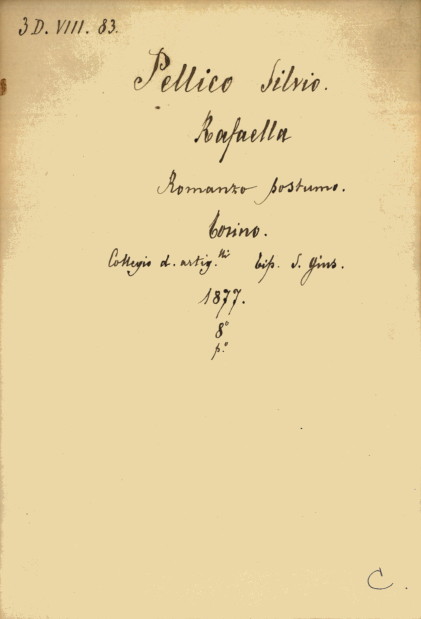 3 D. VIII. 83.
Pellico Silvio.
Rafaella
Romanzo postumo.
Torino.
Collegio d. artig.lli tip. S. Gius.
1877.
8°
p.°
C.